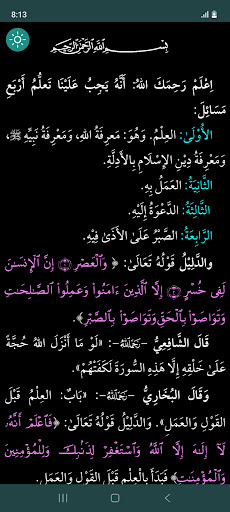 8:13
91%
بِسْمِ اللَّهِ الرَّحْمَنِ الرَّحِيمِ
اِعْلَمْ رَحِمَكَ اللهُ: أَنَّهُ يَجِبُ عَلَيْنَا تَعَلُّمُ أَرْبَعِ
مَسَائِلَ:
الْأُولَىٰ: العِلْمُ. وَهُوَ: مَعرِفَةُ اللهِ، وَمَعْرِفَةُ نَبِيِّهِ ﷺ،
وَمَعْرِفَةُ دِيْنِ الإِسْلَامِ بِالأَدِلَّةِ.
الثَّانِيَةُ: العَمَلُ بِهِ.
الثَّالِثَةُ: الدَّعْوَةُ إِلَيْهِ.
الرَّابِعَةُ: الصَّبْرُ عَلَى الأَذَىٰ فِيهِ.
والدَّلِيْلُ قَوْلُهُ تَعَالَىٰ: ﴿ وَٱلْعَصْرِ ۝١ إِنَّ ٱلْإِنسَـٰنَ
لَفِى خُسْرٍ ۝٢ إِلَّا ٱلَّذِينَ ءَامَنُوا۟ وَعَمِلُوا۟ ٱلصَّـٰلِحَـٰتِ
وَتَوَاصَوْا۟ بِٱلْحَقِّ وَتَوَاصَوْا۟ بِٱلصَّبْرِ ﴾.
قَالَ الشَّافِعِيُّ -رَحِمَهُ اللهُ-: «لَوْ مَا أَنْزَلَ اللهُ حُجَّةً
عَلَىٰ خَلْقِهِ إِلَّا هَذِهِ السُّورَةَ لَكَفَتْهُمْ».
وَقَالَ البُخَارِيُّ -رَحِمَهُ اللهُ-: «بَابٌ: العِلْمُ قَبْلَ
القَوْلِ وَالعَمَلِ». وَالدَّلِيْلُ قَوْلُهُ تَعَالَىٰ: ﴿ فَٱعْلَمْ أَنَّهُۥ
لَآ إِلَـٰهَ إِلَّا ٱللَّهُ وَٱسْتَغْفِرْ لِذَنۢبِكَ وَلِلْمُؤْمِنِينَ
وَٱلْمُؤْمِنَـٰتِ ﴾ فَبَدَأَ بِالْعِلْمِ قَبْلَ القَوْلِ وَالعَمَلِ.